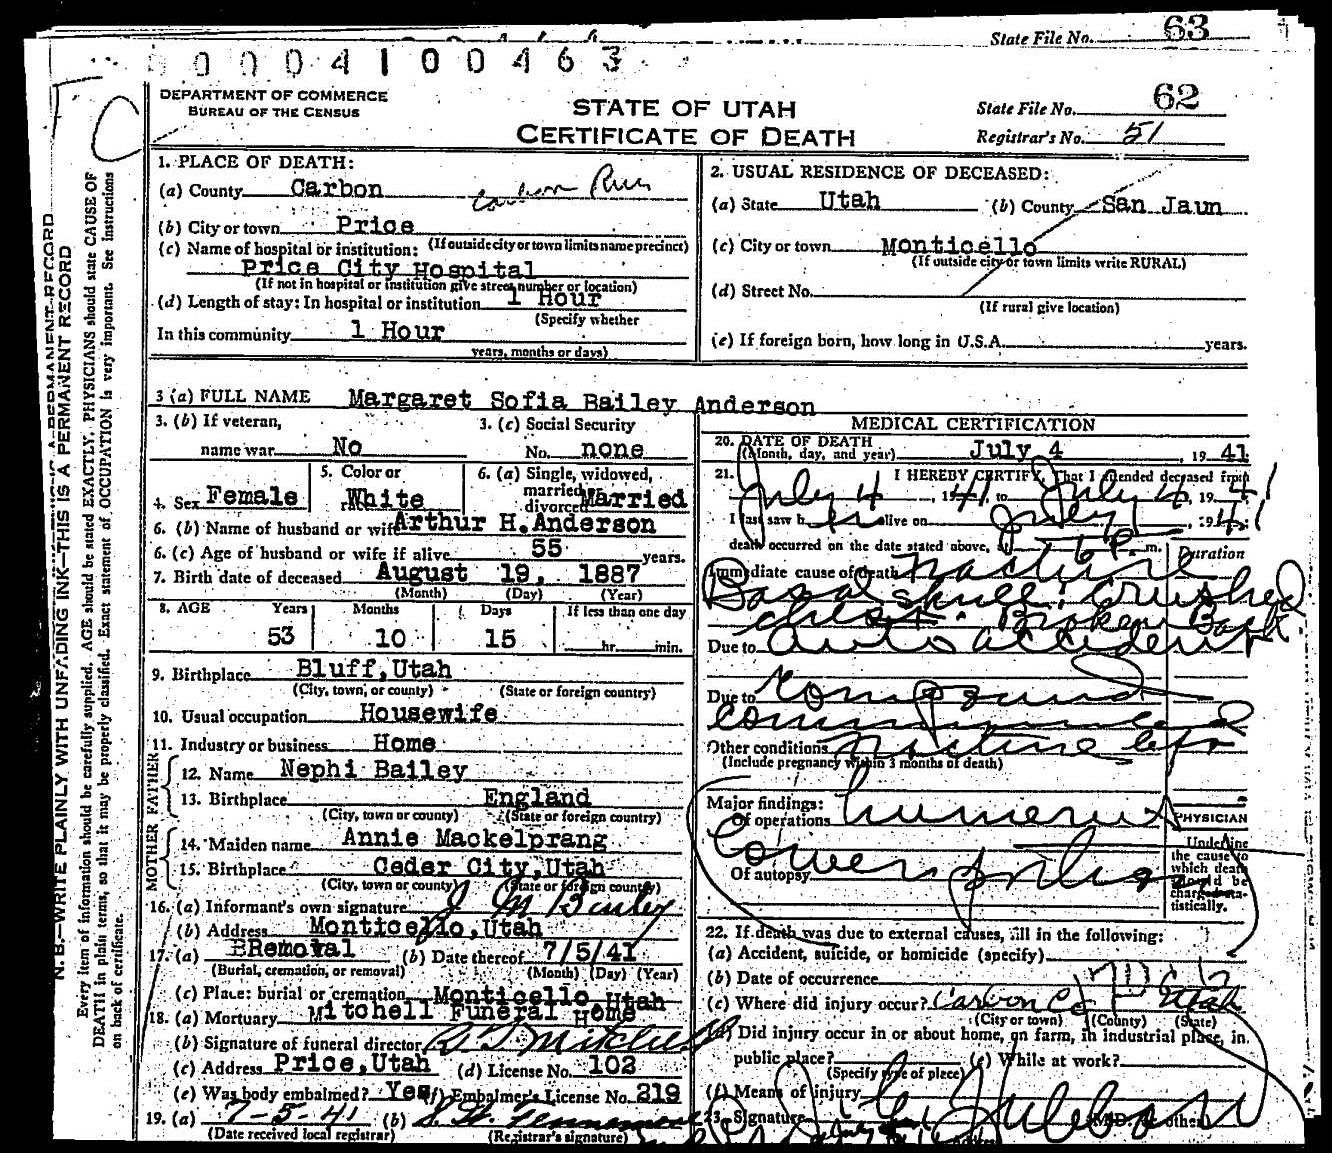 State File No. 63
0 0 0 4 1 0 0 4 6 3
DEPARTMENT OF COMMERCE
BUREAU OF THE CENSUS
STATE OF UTAH
CERTIFICATE OF DEATH
State File No. 62
Registrar's No. 51
1. PLACE OF DEATH:
(a) County Carbon
(b) City or town Price
(If outside city or town limits name precinct)
(c) Name of hospital or institution:
Price City Hospital
(If not in hospital or institution give street number or location)
(d) Length of stay: In hospital or institution 1 Hour
(Specify whether
In this community 1 Hour
years, months or days)
2. USUAL RESIDENCE OF DECEASED:
(a) State Utah (b) County San Jaun
(c) City or town Monticello
(If outside city or town limits write RURAL)
(d) Street No.
(If rural give location)
(e) If foreign born, how long in U.S.A. years.
3 (a) FULL NAME Margaret Sofia Bailey Anderson
3. (b) If veteran, name war No
3. (c) Social Security No. none
4. Sex Female
5. Color or race White
6. (a) Single, widowed, married, divorced Married
6. (b) Name of husband or wife Arthur H. Anderson
6. (c) Age of husband or wife if alive 55 years.
7. Birth date of deceased August 19, 1887
(Month) (Day) (Year)
8. AGE Years Months Days If less than one day
53 10 15 hr. min.
9. Birthplace Bluff, Utah
(City, town, or county) (State or foreign country)
10. Usual occupation Housewife
11. Industry or business Home
FATHER
12. Name Nephi Bailey
13. Birthplace England
(City, town or county) (State or foreign country)
MOTHER
14. Maiden name Annie Mackelprang
15. Birthplace Ceder City, Utah
(City, town or county) (State or foreign county)
16. (a) Informant's own signature J M Bailey
(b) Address Monticello, Utah
17. (a) Removal (b) Date thereof 7/5/41
(Burial, cremation, or removal) (Month) (Day) (Year)
(c) Place: burial or cremation Monticello, Utah
18. (a) Mortuary Mitchell Funeral Home
(b) Signature of funeral director Mitchell
(c) Address Price, Utah (d) License No. 102
(e) Was body embalmed? Yes (f) Embalmer's License No. 219
19. (a) 7-5-41 (b)
(Date received local registrar) (Registrar's signature)
MEDICAL CERTIFICATION
20. DATE OF DEATH
(Month, day, and year) July 4, 1941
21. I HEREBY CERTIFY, That I attended deceased from
July 4, 1941 to July 4, 1941
I last saw her alive on July 4, 1941
death occurred on the date stated above, at P. m.
Duration
Immediate cause of death Fracture
Basal skull: Crushed
chest. Broken Back
Due to auto accident
Due to Compound
comminuted
Other conditions fracture left
(Include pregnancy within 3 months of death)
Major findings:
Of operations humerus
PHYSICIAN
Lower
Of autopsy
Underline the cause to which death should be charged statistically.
22. If death was due to external causes, fill in the following:
(a) Accident, suicide, or homicide (specify)
(b) Date of occurrence
(c) Where did injury occur? Carbon Co Utah
(City or town) (County) (State)
(d) Did injury occur in or about home, on farm, in industrial place, in
public place? (e) While at work?
(Specify type of place)
(f) Means of injury
23. Signature M.D. or other
N. B.—WRITE PLAINLY WITH UNFADING INK—THIS IS A PERMANENT RECORD
Every item of information should be carefully supplied. AGE should be stated EXACTLY. PHYSICIANS should state CAUSE OF
DEATH in plain terms, so that it may be properly classified. Exact statement of OCCUPATION is very important. See instructions
on back of certificate.